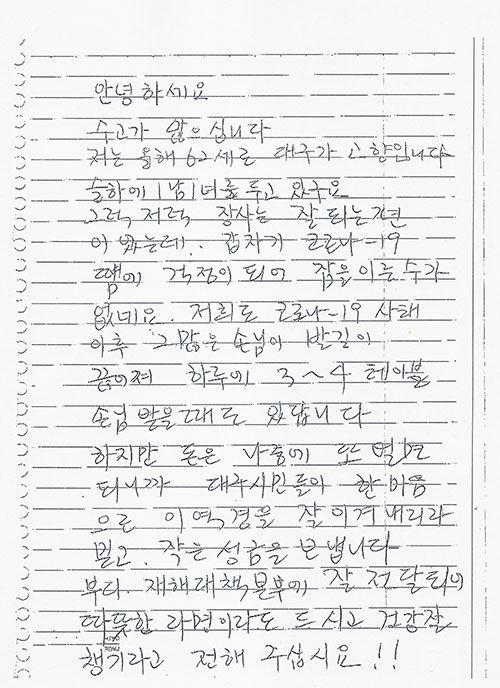 안녕하세요
수고가 많으십니다
저는 올해 62세로 대구가 고향입니다
슬하에 1남 1녀를 두고 있구요
그럭 저럭 장사는 잘 되는편
이 였는데. 갑자기 코로나-19
땜에 걱정이 되어 잠을 이룰 수가
없네요. 저희도 코로나-19 사태
이후 그 많은 손님이 발길이
끊어져 하루에 3~4 테이블
손님 받을때도 있답니다
하지만 돈은 나중에 또 벌면
되니까 대구시민들이 한마음
으로 이 역경을 잘 이겨내리라
믿고. 작은 성금을 보냅니다
부디. 재해대책본부에 잘 전달되어
따뜻한 라면이라도 드시고 건강잘
챙기라고 전해 주십시요 !!